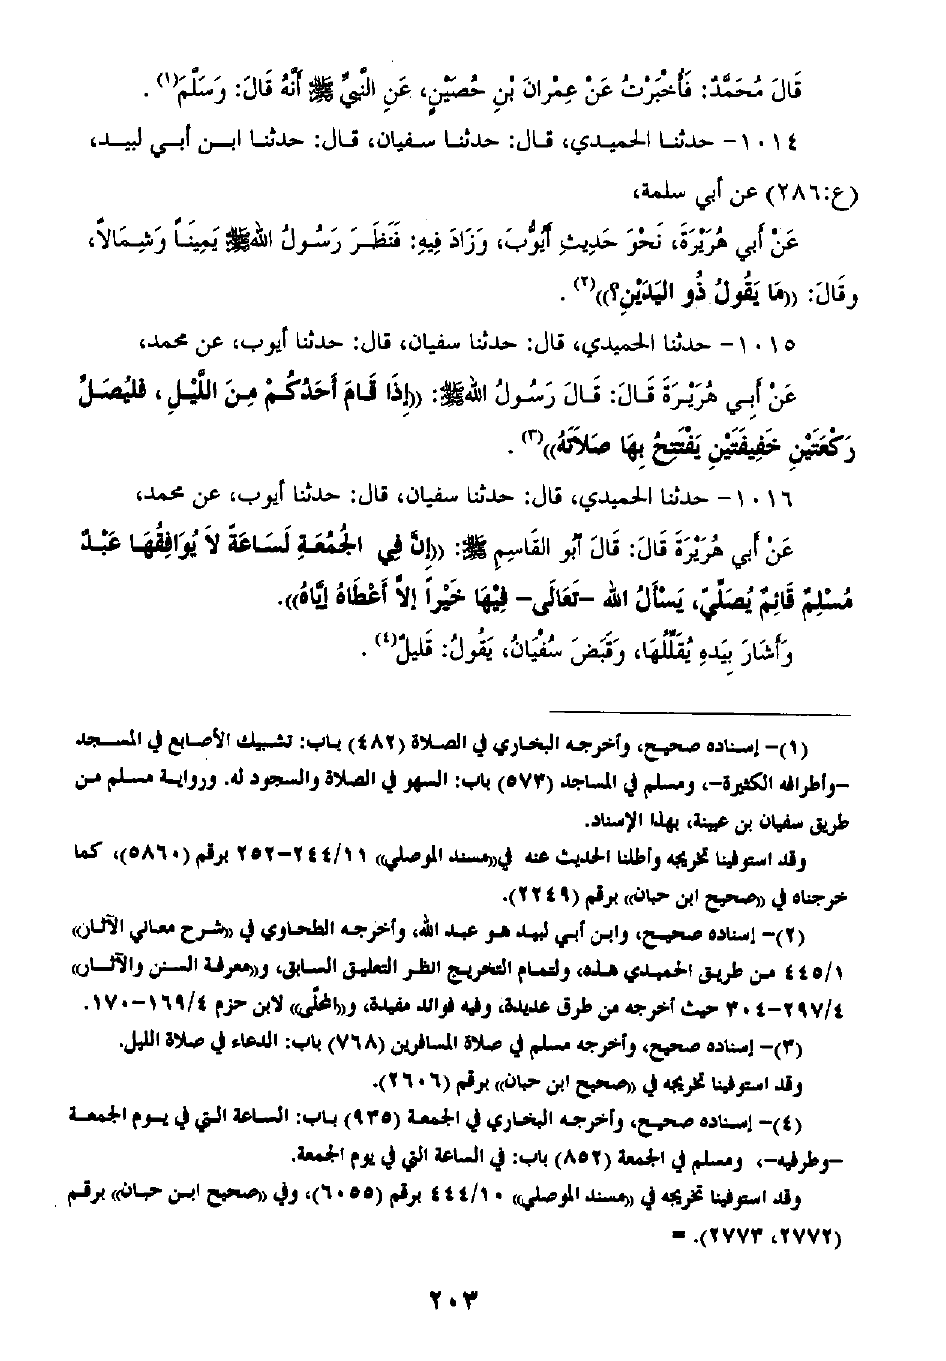 قَالَ مُحَمَّدٌ: فَأُخْبِرْتُ عَنْ عِمْرَانَ بْنِ حُصَيْنٍ، عَنِ النَّبِيِّ ﷺ أَنَّهُ قَالَ: وَسَلَّمَ(١).
١٠١٤- حدثنا الحميدي، قال: حدثنا سفيان، قال: حدثنا ابن أبي لبيد،
(ع:٢٨٦) عن أبي سلمة،
عَنْ أَبِي هُرَيْرَةَ، نَحْوَ حَدِيثِ أَيُّوبَ، وَزَادَ فِيهِ: فَنَظَرَ رَسُولُ اللهِ ﷺ يَمِينَاً وَشِمَالاً،
وقَالَ: ((مَا يَقُولُ ذُو الْيَدَيْنِ؟))(٢).
١٠١٥- حدثنا الحميدي، قال: حدثنا سفيان، قال: حدثنا أيوب، عن محمد،
عَنْ أَبِي هُرَيْرَةَ قَالَ: قَالَ رَسُولُ اللهِ ﷺ: ((إِذَا قَامَ أَحَدُكُمْ مِنَ اللَّيْلِ، فَلْيُصَلِّ
رَكْعَتَيْنِ خَفِيفَتَيْنِ يَفْتَتِحُ بِهَا صَلاَتَهُ))(٣).
١٠١٦- حدثنا الحميدي، قال: حدثنا سفيان، قال: حدثنا أيوب، عن محمد،
عَنْ أَبِي هُرَيْرَةَ قَالَ: قَالَ أَبُو القَاسِمِ ﷺ: ((إِنَّ فِي الْجُمْعَةِ لَسَاعَةً لاَ يُوَافِقُهَا عَبْدٌ
مُسْلِمٌ قَائِمٌ يُصَلِّيَ، يَسْأَلُ الله -تَعَالَى- فِيْهَا خَيْراً إِلاَّ أَعْطَاهُ إِيَّاهُ)).
وَأَشَارَ بِيَدِهِ يُقَلِّلُهَا، وَقَبَضَ سُفْيَانُ، يَقُولُ: قَلِيلٌ(٤).
(١)- إسناده صحيح، وأخرجه البخاري في الصلاة (٤٨٢) باب: تشبيك الأصابع في المسجد
-وأطرافه الكثيرة-، ومسلم في المساجد (٥٧٣) باب: السهو في الصلاة والسجود له. ورواية مسلم من
طريق سفيان بن عيينة، بهذا الإسناد.
وقد استوفينا تخريجه وأطلنا الحديث عنه في((مسند الموصلي)) ٢٤٤/١١-٢٥٢ برقم (٥٨٦٠)، كما
خرجناه في ((صحيح ابن حبان)) برقم (٢٢٤٩).
(٢)- إسناده صحيح، وابن أبي لبيد هو عبد الله، وأخرجه الطحاوي في ((شرح معاني الآثار))
٤٤٥/١ من طريق الحميدي هذه، ولتمام التخريج انظر التعليق السابق، و((معرفة السنن والآثار))
٢٩٧/٤-٣٠٤ حيث أخرجه من طرق عديدة، وفيه فوائد مفيدة، و((المحلّى)) لابن حزم ١٦٩/٤-١٧٠.
(٣)- إسناده صحيح، وأخرجه مسلم في صلاة المسافرين (٧٦٨) باب: الدعاء في صلاة الليل.
وقد استوفينا تخريجه في ((صحيح ابن حبان)) برقم (٢٦٠٦).
(٤)- إسناده صحيح، وأخرجه البخاري في الجمعة (٩٣٥) باب: الساعة التي في يوم الجمعة
-وطرفيه-، ومسلم في الجمعة (٨٥٢) باب: في الساعة التي في يوم الجمعة.
وقد استوفينا تخريجه في ((مسند الموصلي)) ٤٤٤/١٠ برقم (٦٠٥٥)، وفي ((صحيح ابن حبان)) برقم
(٢٧٧٢، ٢٧٧٣). =
٢٠٣